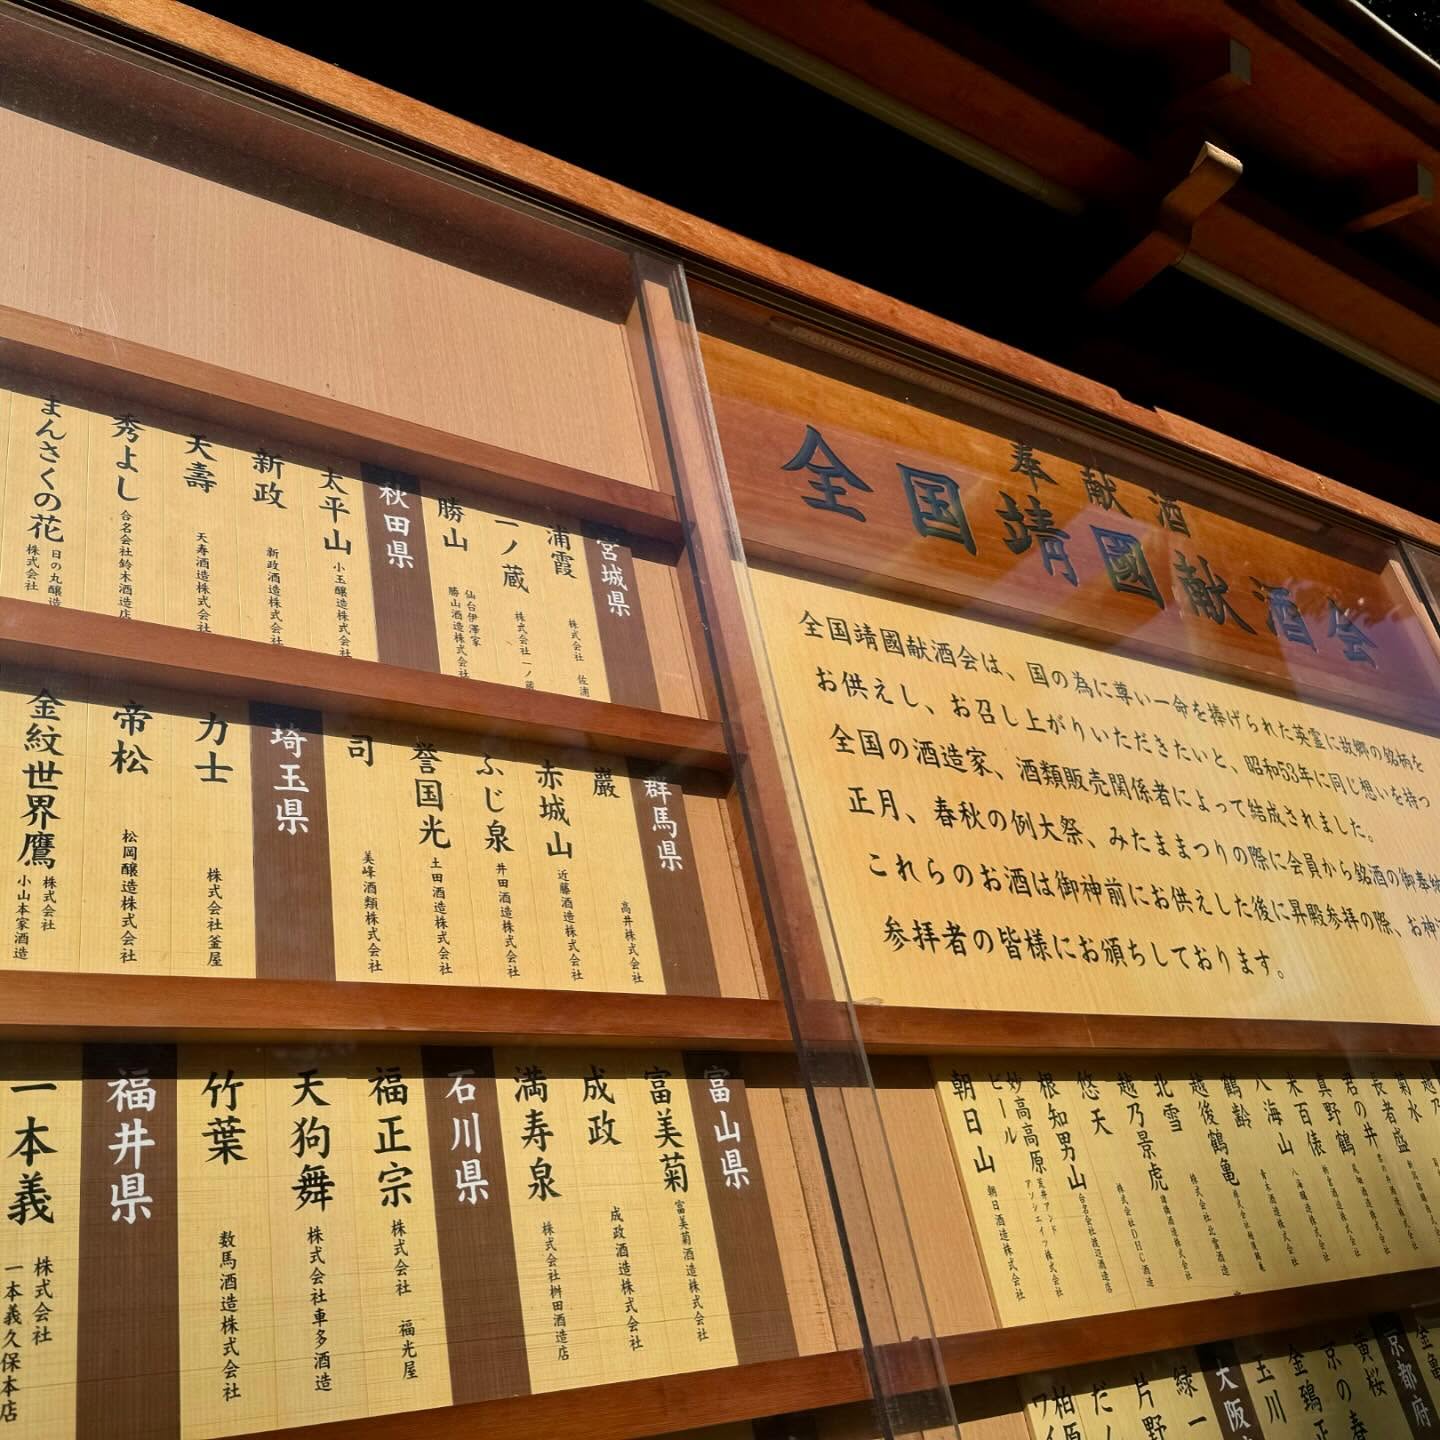 奉献酒
全国靖國献酒会
全国靖國献酒会は、国の為に尊い一命を捧げられた英霊に故郷の銘柄を
お供えし、お召し上がりいただきたいと、昭和53年に同じ想いを持つ
全国の酒造家、酒類販売関係者によって結成されました。
正月、春秋の例大祭、みたままつりの際に会員から銘酒の御奉納
これらのお酒は御神前にお供えした後に昇殿参拝の際、お神酒
参拝者の皆様にお頒ちしております。
宮城県
浦霞 株式会社 佐浦
一ノ蔵 株式会社 一ノ蔵
勝山 仙台伊澤家 勝山酒造株式会社
秋田県
太平山 小玉醸造株式会社
新政 新政酒造株式会社
天壽 天寿酒造株式会社
秀よし 合名会社鈴木酒造店
まんさくの花 日の丸醸造株式会社
群馬県
巖 高井株式会社
赤城山 近藤酒造株式会社
ふじ泉 井田酒造株式会社
誉国光 土田酒造株式会社
司 美峰酒類株式会社
埼玉県
力士 株式会社釜屋
帝松 松岡醸造株式会社
金紋世界鷹 株式会社小山本家酒造
富山県
富美菊 富美菊酒造株式会社
成政 成政酒造株式会社
満寿泉 株式会社桝田酒造店
石川県
福正宗 株式会社 福光屋
天狗舞 株式会社車多酒造
竹葉 数馬酒造株式会社
福井県
一本義 株式会社 一本義久保本店
越乃
菊水
長者盛
君の井 君の井酒造株式会社
真野鶴
米百俵
八海山 八海醸造株式会社
鶴齢 青木酒造株式会社
越後鶴亀 株式会社越後鶴亀
北雪 株式会社北雪酒造
越乃景虎 諸橋酒造株式会社
悠天 株式会社DHC酒造
根知男山 合名会社渡辺酒造店
妙高高原ビール 荒井アンドアソシエイツ株式会社
朝日山 朝日酒造株式会社
金亀
京都府
黄桜
京の春
金鵄正
玉川
大阪
緑一
片野